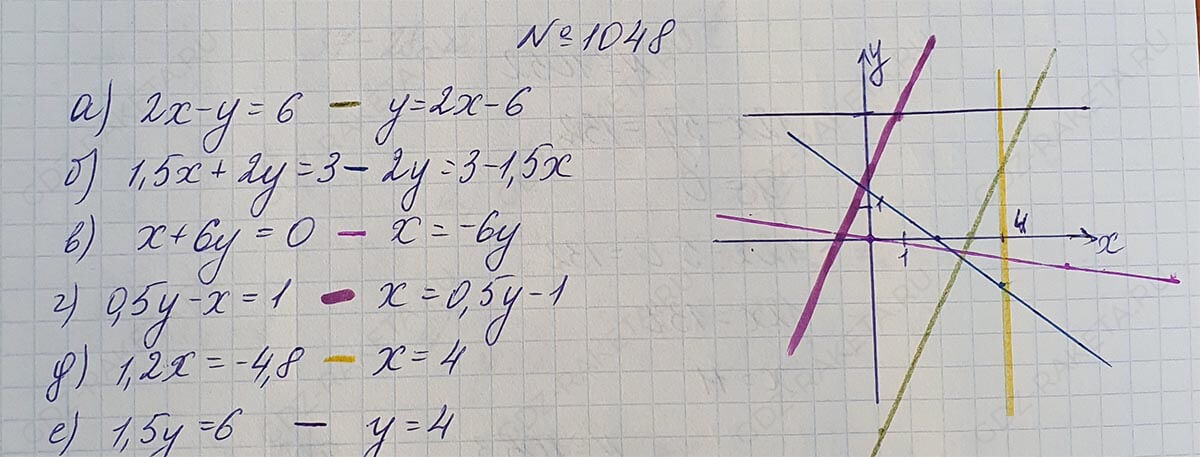 № 1048
а) 2x-y=6 — y=2x-6
б) 1,5x+2y=3 — 2y=3-1,5x
в) x+6y=0 — x=-6y
г) 0,5y-x=1 — x=0,5y-1
д) 1,2x=-4,8 — x=4
е) 1,5y=6 — y=4
y
1
4
1
x